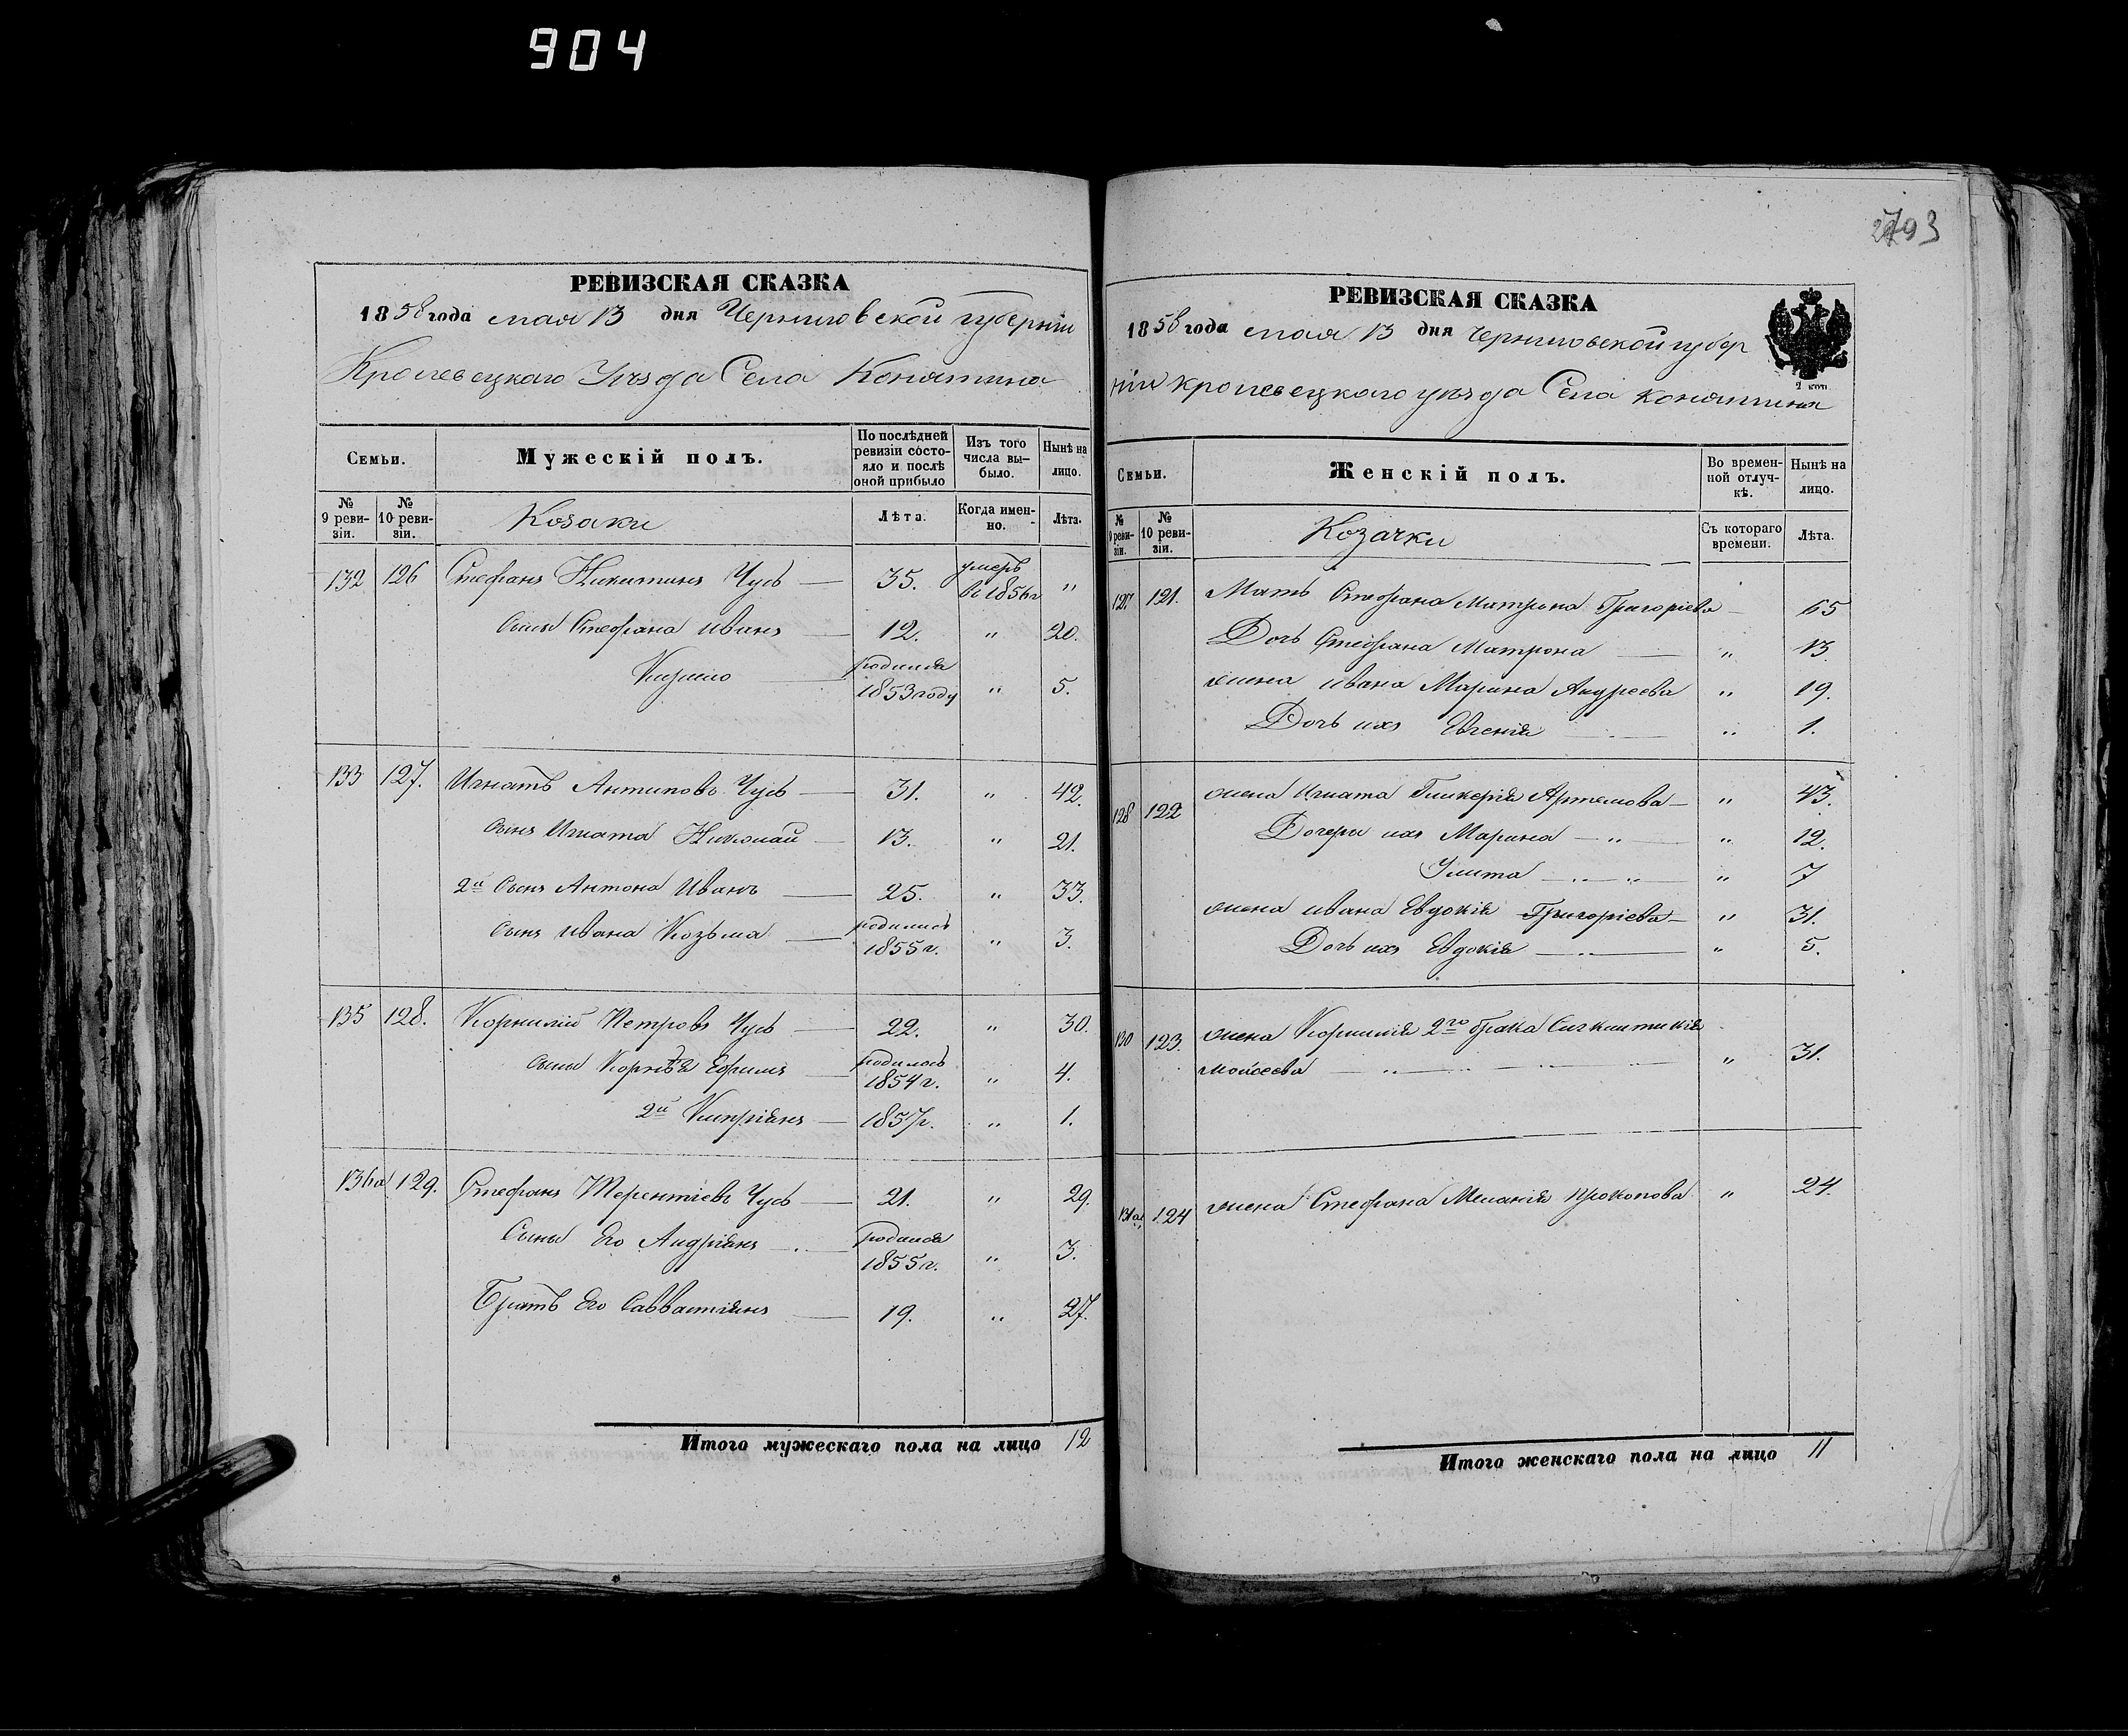 904
2793
РЕВИЗСКАЯ СКАЗКА
1858 года мая 13 дня Черниговской губерніи
Кролевецкаго Уѣзда Села Конятина
Семьи.
Мужескій полъ.
По послѣдней ревизіи состояло и послѣ оной прибыло
Изъ того числа выбыло.
Нынѣ на лицо.
№ 9 ревизіи.
№ 10 ревизіи.
Козаки
Лѣта.
Когда именно.
Лѣта.
132 126 Стефанъ Никитинъ Чусь — 35. умеръ въ 1856 г "
Сыны Стефана Иванъ — 12. " 20.
родился 1853 году " 5.
133 127. Игнатъ Антиповъ Чусь — 31. " 42.
Сынъ Игната Николай — 13. " 21.
2й Сынъ Антона Иванъ — 25. " 33.
Сынъ Ивана Козьма — родились 1855 г. " 3.
135 128. Корнилій Петровъ Чусь — 22. " 30.
Сыны Ефимъ — родились 1854 г. " 4.
2й Кипріянъ — 1857 г. " 1.
136а 129. Стефанъ Терентіевъ Чусь — 21. " 29.
Сыны Его Андріянъ — родился 1855 г. " 3.
Братъ Его Савватіянъ — 19. " 27.
Итого мужескаго пола на лицо 12
РЕВИЗСКАЯ СКАЗКА
1858 года мая 13 дня Черниговской губер
ніи Кролевецкаго уѣзда Села Конятина
2 коп.
Семьи.
Женскій полъ.
Во временной отлучкѣ.
Нынѣ на лицо.
№ 9 ревизіи.
№ 10 ревизіи.
Козачки
Съ котораго времени.
Лѣта.
127 121. Мать Стефана Матрона Григоріева — 65
Дочь Стефана Матрона — " 13.
жена Ивана Марина Андреева " 19.
Дочь ихъ Евгенія — " 1.
128 122 жена Игната Гликерія Артемова — " 43.
Дочери ихъ Марина — " — " 12.
Улита — " — " 7
жена Ивана Евдокія Григоріева — " 31.
Дочь ихъ Евдокія — " — " 5.
130 123. жена Корнилія 2го брака
Мойсеева — " 31.
131а 124 жена Стефана Меланія Прокопова " 24.
Итого женскаго пола на лицо 11